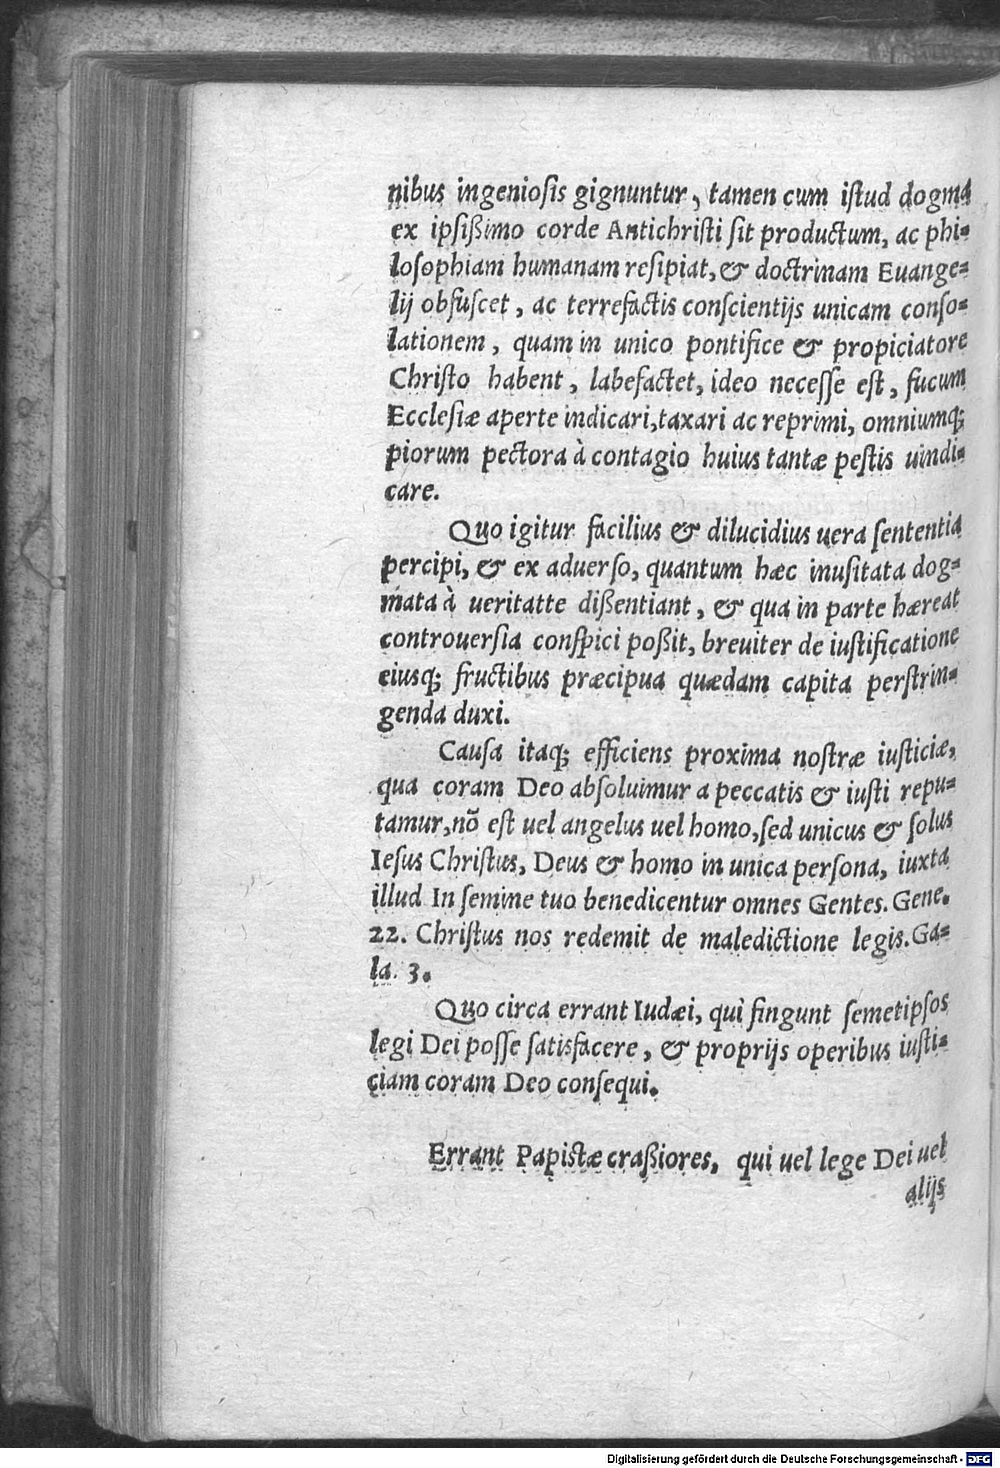 nibus ingeniosis gignuntur, tamen cum iſtud dogma
ex ipsißimo corde Antichriſti ſit productum, ac phi-
loſophiam humanam reſipiat, & doctrinam Euange-
lij obfuſcet, ac terrefactis conſcientijs unicam conſo-
lationem, quam in unico pontifice & propiciatore
Chriſto habent, labefactet, ideo neceſſe eſt, fucum
Eccleſiæ aperte indicari, taxari ac reprimi, omniumq;
piorum pectora à contagio huius tantæ peſtis uindi-
care.
Quo igitur facilius & dilucidius uera ſententia
percipi, & ex aduerſo, quantum hæc inuſitata dog-
mata à ueritatte dißentiant, & qua in parte hæreat
controuerſia conſpici poßit, breuiter de iuſtificatione
eiusq; fructibus præcipua quædam capita perſtrin-
genda duxi.
Cauſa itaq; efficiens proxima noſtræ iuſticiæ,
qua coram Deo abſoluimur a peccatis & iuſti repu-
tamur, nõ eſt uel angelus uel homo, ſed unicus & ſolus
Ieſus Chriſtus, Deus & homo in unica perſona, iuxta
illud In ſemine tuo benedicentur omnes Gentes. Gene.
22. Chriſtus nos redemit de maledictione legis. Ga-
la. 3.
Quo circa errant Iudæi, qui fingunt ſemetipſos
legi Dei poſſe ſatisfacere, & proprijs operibus iuſti-
ciam coram Deo conſequi.
Errant Papistæ craßiores, qui uel lege Dei uel
alijs
Digitalisierung gefördert durch die Deutsche Forschungsgemeinschaft - DFG